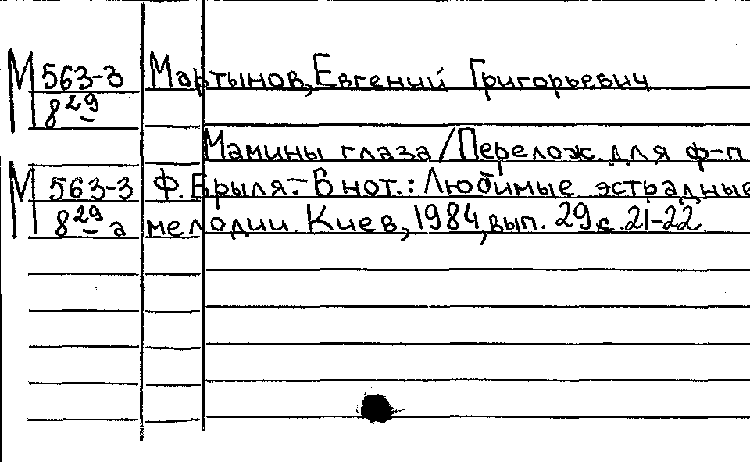 М 563-3 Мартынов, Евгений Григорьевич
8 29
Мамины глаза / Перелож. для ф-п
М 563-3 Ф. Брыля.- В нот.: Любимые эстрадные
8 29 а мелодии. Киев, 1984, вып. 29, с. 21-22